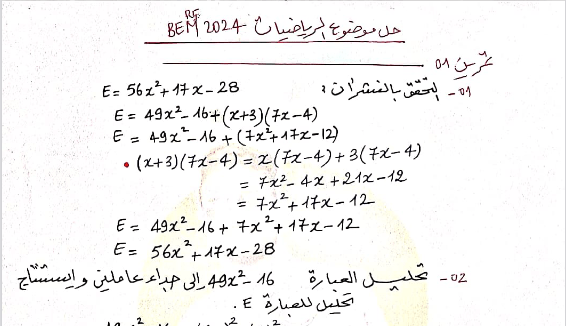 حل موضوع الرياضيات BEM 2024
تمرين 01
01- التحقق بالنشرات: E = 56x²+17x-28
E = 49x²-16+(x+3)(7x-4)
E = 49x²-16+(7x²+17x-12)
• (x+3)(7x-4) = x(7x-4)+3(7x-4)
= 7x²-4x+21x-12
= 7x²+17x-12
E = 49x²-16+7x²+17x-12
E = 56x²+17x-28
02- تحليل العبارة 49x²-16 إلى جداء عاملين واستنتاج
تحليل للعبارة E.